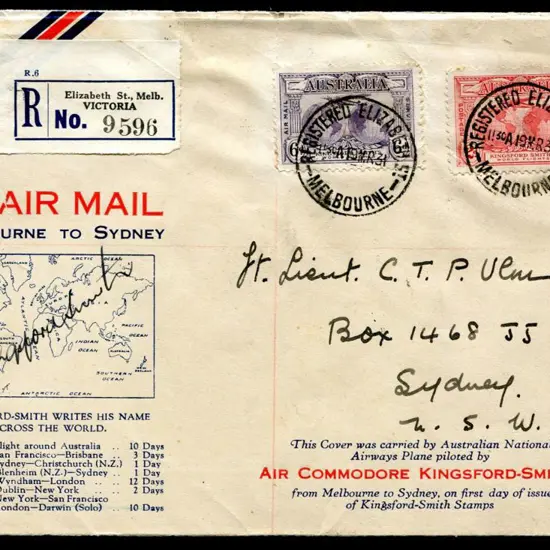 R.6
Elizabeth St., Melb.
VICTORIA
R No. 9596
AIR MAIL
AUSTRALIA
AIR MAIL
6
REGISTERED ELIZABETH ST
1130A 19MR31
MELBOURNE
KINGSFORD SMITH
WORLD FLIGHTS
REGISTERED ELIZAB
1130A 19MR31
MELBOURNE
AIR MAIL
URNE TO SYDNEY
ARCTIC OCEAN
PACIFIC OCEAN
INDIAN OCEAN
SOUTHERN OCEAN
ANTARCTIC OCEAN
ngsford Smith
RD-SMITH WRITES HIS NAME
CROSS THE WORLD.
light around Australia .. 10 Days
an Francisco—Brisbane .. 3 Days
ydney—Christchurch (N.Z.) 1 Day
lenheim (N.Z.)—Sydney .. 1 Day
Wyndham—London .. 12 Days
Dublin—New York .. 2 Days
New York—San Francisco
ondon—Darwin (Solo) .. 10 Days
Ft. Lieut. C. T. P. Ulm
Box 1468 JJ
Sydney.
N. S. W.
This Cover was carried by Australian National
Airways Plane piloted by
AIR COMMODORE KINGSFORD-SMI
from Melbourne to Sydney, on first day of issue
of Kingsford-Smith Stamps